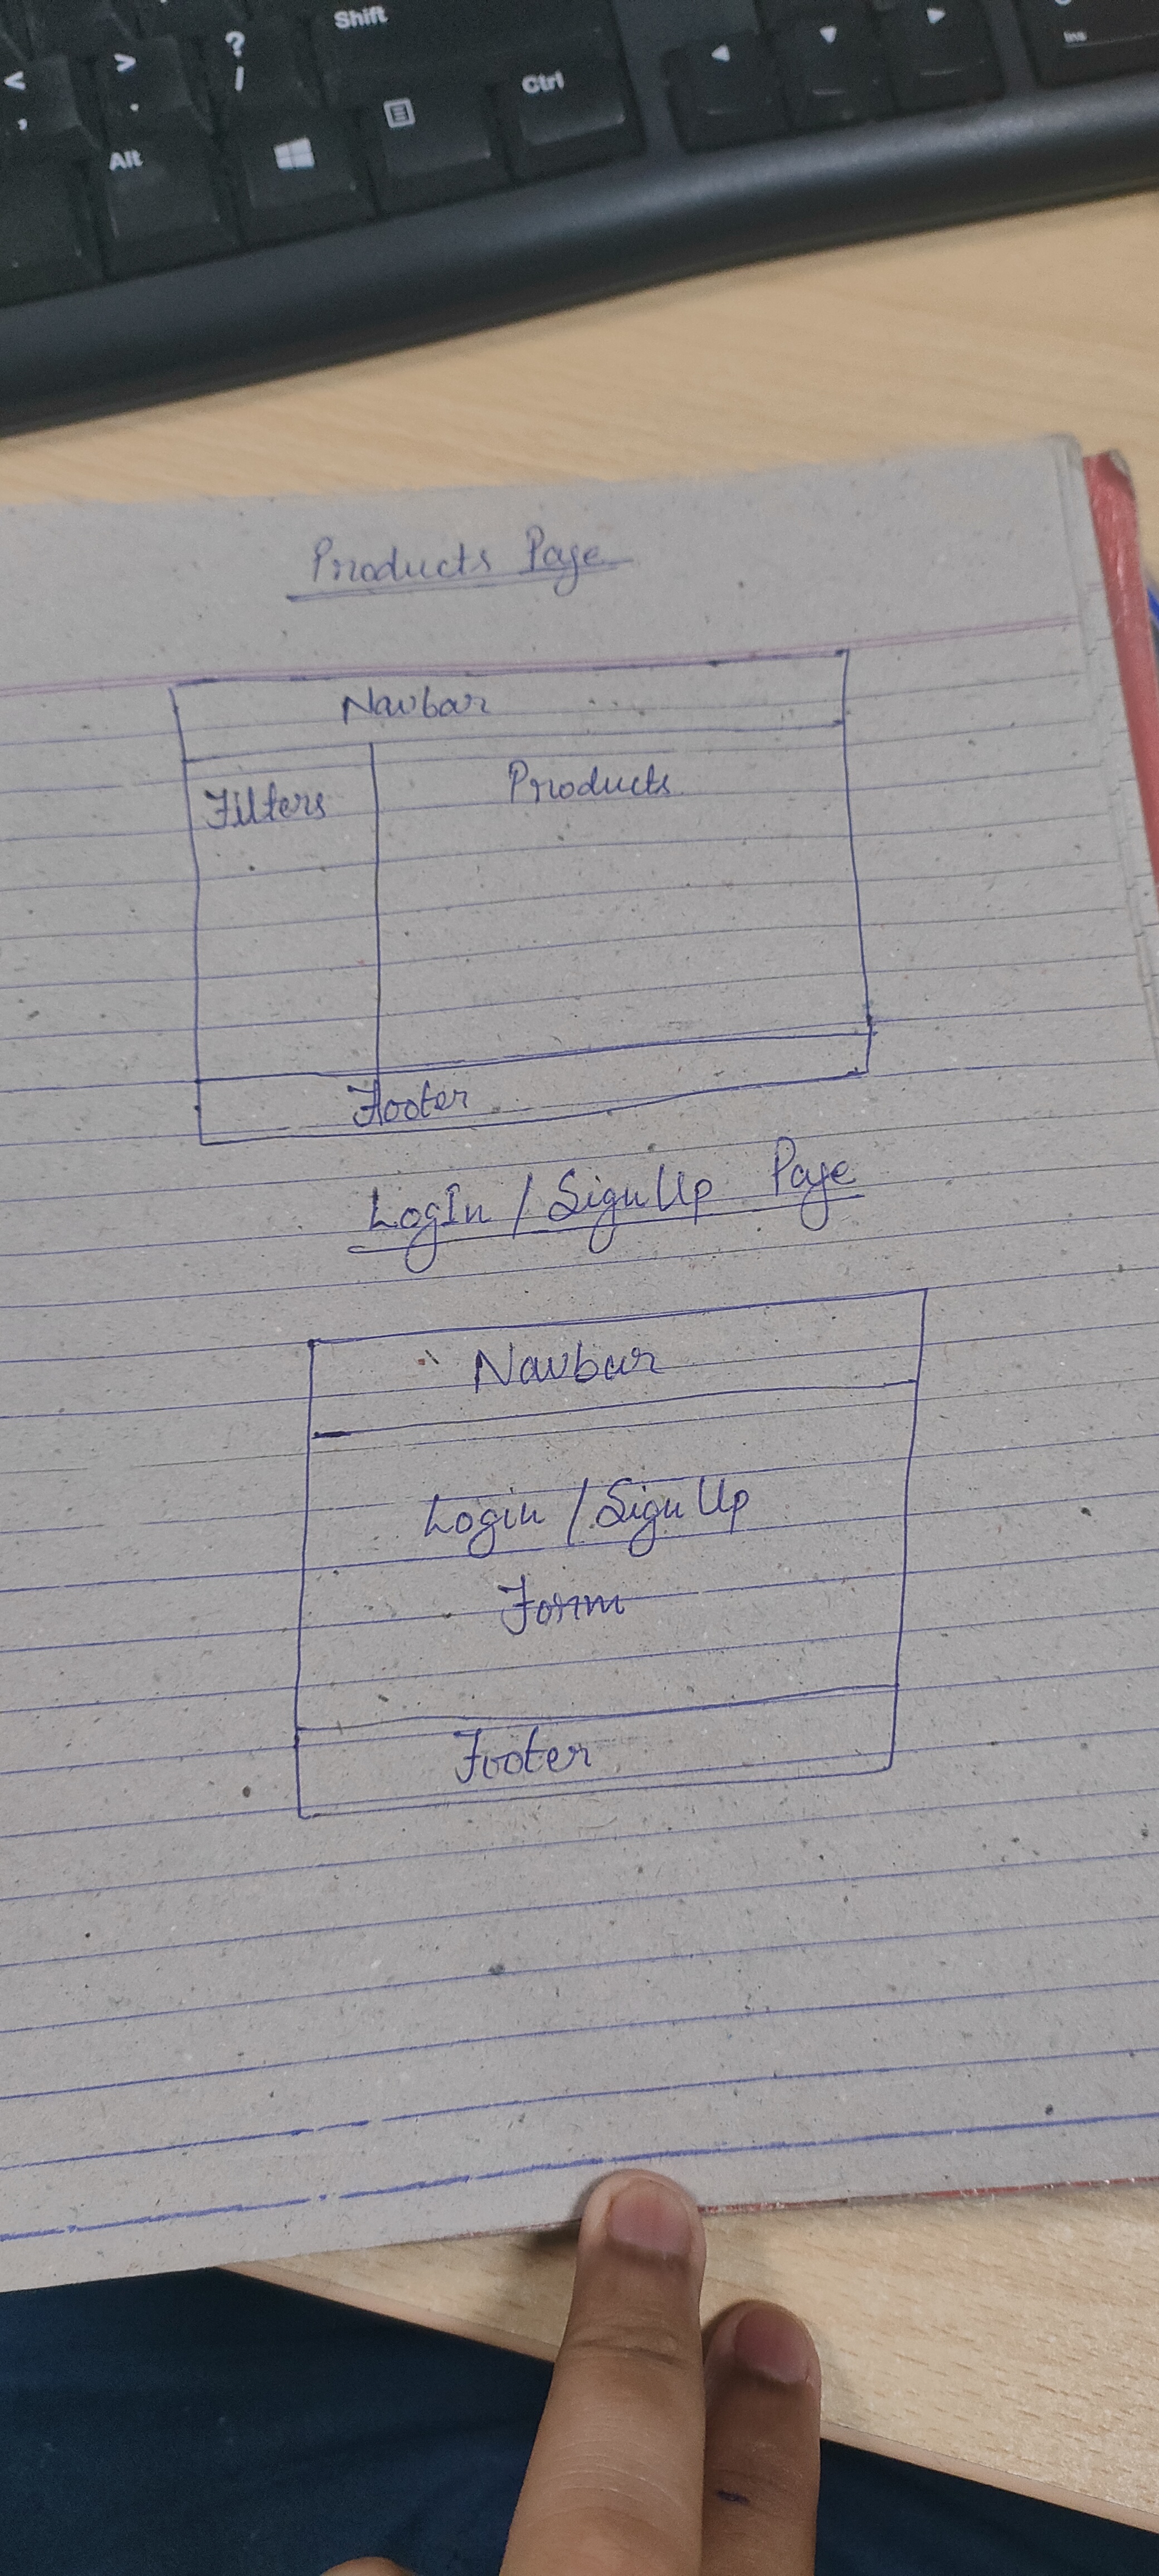 Shift
Ins
Ctrl
Alt
Products Page
Navbar
Filters
Products
Footer
LogIn / SignUp Page
Navbar
Login / SignUp
Form
Footer